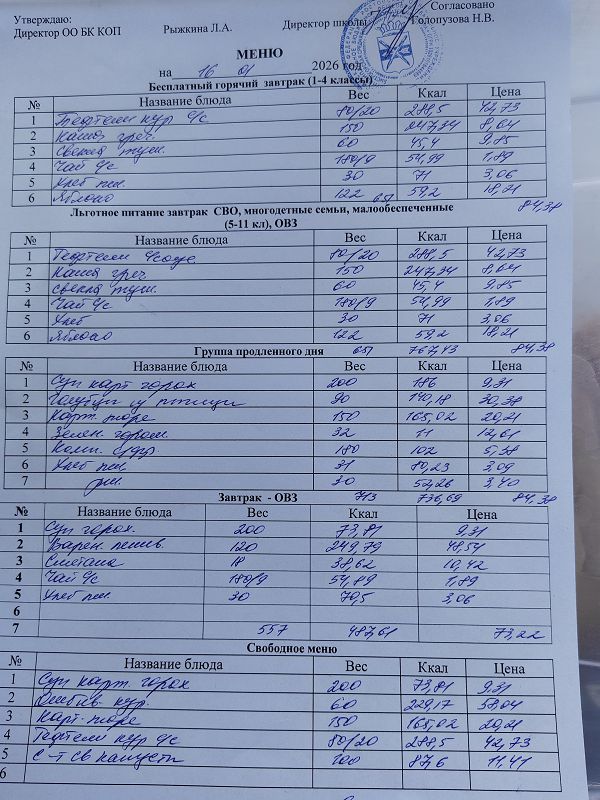 Утверждаю:
Согласовано
Директор ОО БК КОП Рыжкина Л.А. Директор школы Голопузова Н.В.
МЕНЮ
на 16 01 2026 год
Бесплатный горячий завтрак (1-4 классы)
№ Название блюда Вес Ккал Цена
1 Тефтели кур с/с 80/20 288,5 42,73
2 Каша греч. 150 247,34 8,64
3 Свекла туш. 60 45,4 9,85
4 Чай с/с 180/9 54,99 1,89
5 Хлеб пш. 30 71 3,06
6 Яблоко 122 59,2 18,21
651 84,38
Льготное питание завтрак СВО, многодетные семьи, малообеспеченные
(5-11 кл), ОВЗ
№ Название блюда Вес Ккал Цена
1 Тефтели 80/20 288,5 42,73
2 Каша греч 150 247,34 8,64
3 свекла туш. 60 45,4 9,85
4 Чай с/с 180/9 54,99 1,89
5 Хлеб 30 71 3,06
6 Яблоко 122 59,2 18,21
Группа продленного дня 651 767,43 84,38
№ Название блюда Вес Ккал Цена
1 Суп карт горох 200 186 9,31
2 из птицы 90 140,18 30,38
3 Карт. пюре 150 165,02 20,21
4 Зелен. горош. 32 11 12,61
5 Комп. с/фр 180 102 5,38
6 Хлеб пш. 31 80,23 3,09
7 рж. 30 52,26 3,40
Завтрак - ОВЗ 713 736,69 84,38
№ Название блюда Вес Ккал Цена
1 Суп горох. 200 73,81 9,31
2 Варен. 120 249,79 48,54
3 Сметана 18 38,62 10,42
4 Чай с/с 180/9 54,89 1,89
5 Хлеб пш. 30 70,5 3,06
6
7 557 487,61 73,22
Свободное меню
№ Название блюда Вес Ккал Цена
1 Суп карт. горох 200 73,81 9,31
2 кур. 60 229,17 58,04
3 Карт. пюре 150 165,02 20,21
4 Тефтели кур с/с 80/20 288,5 42,73
5 С-т св капусты 100 87,6 11,41
6